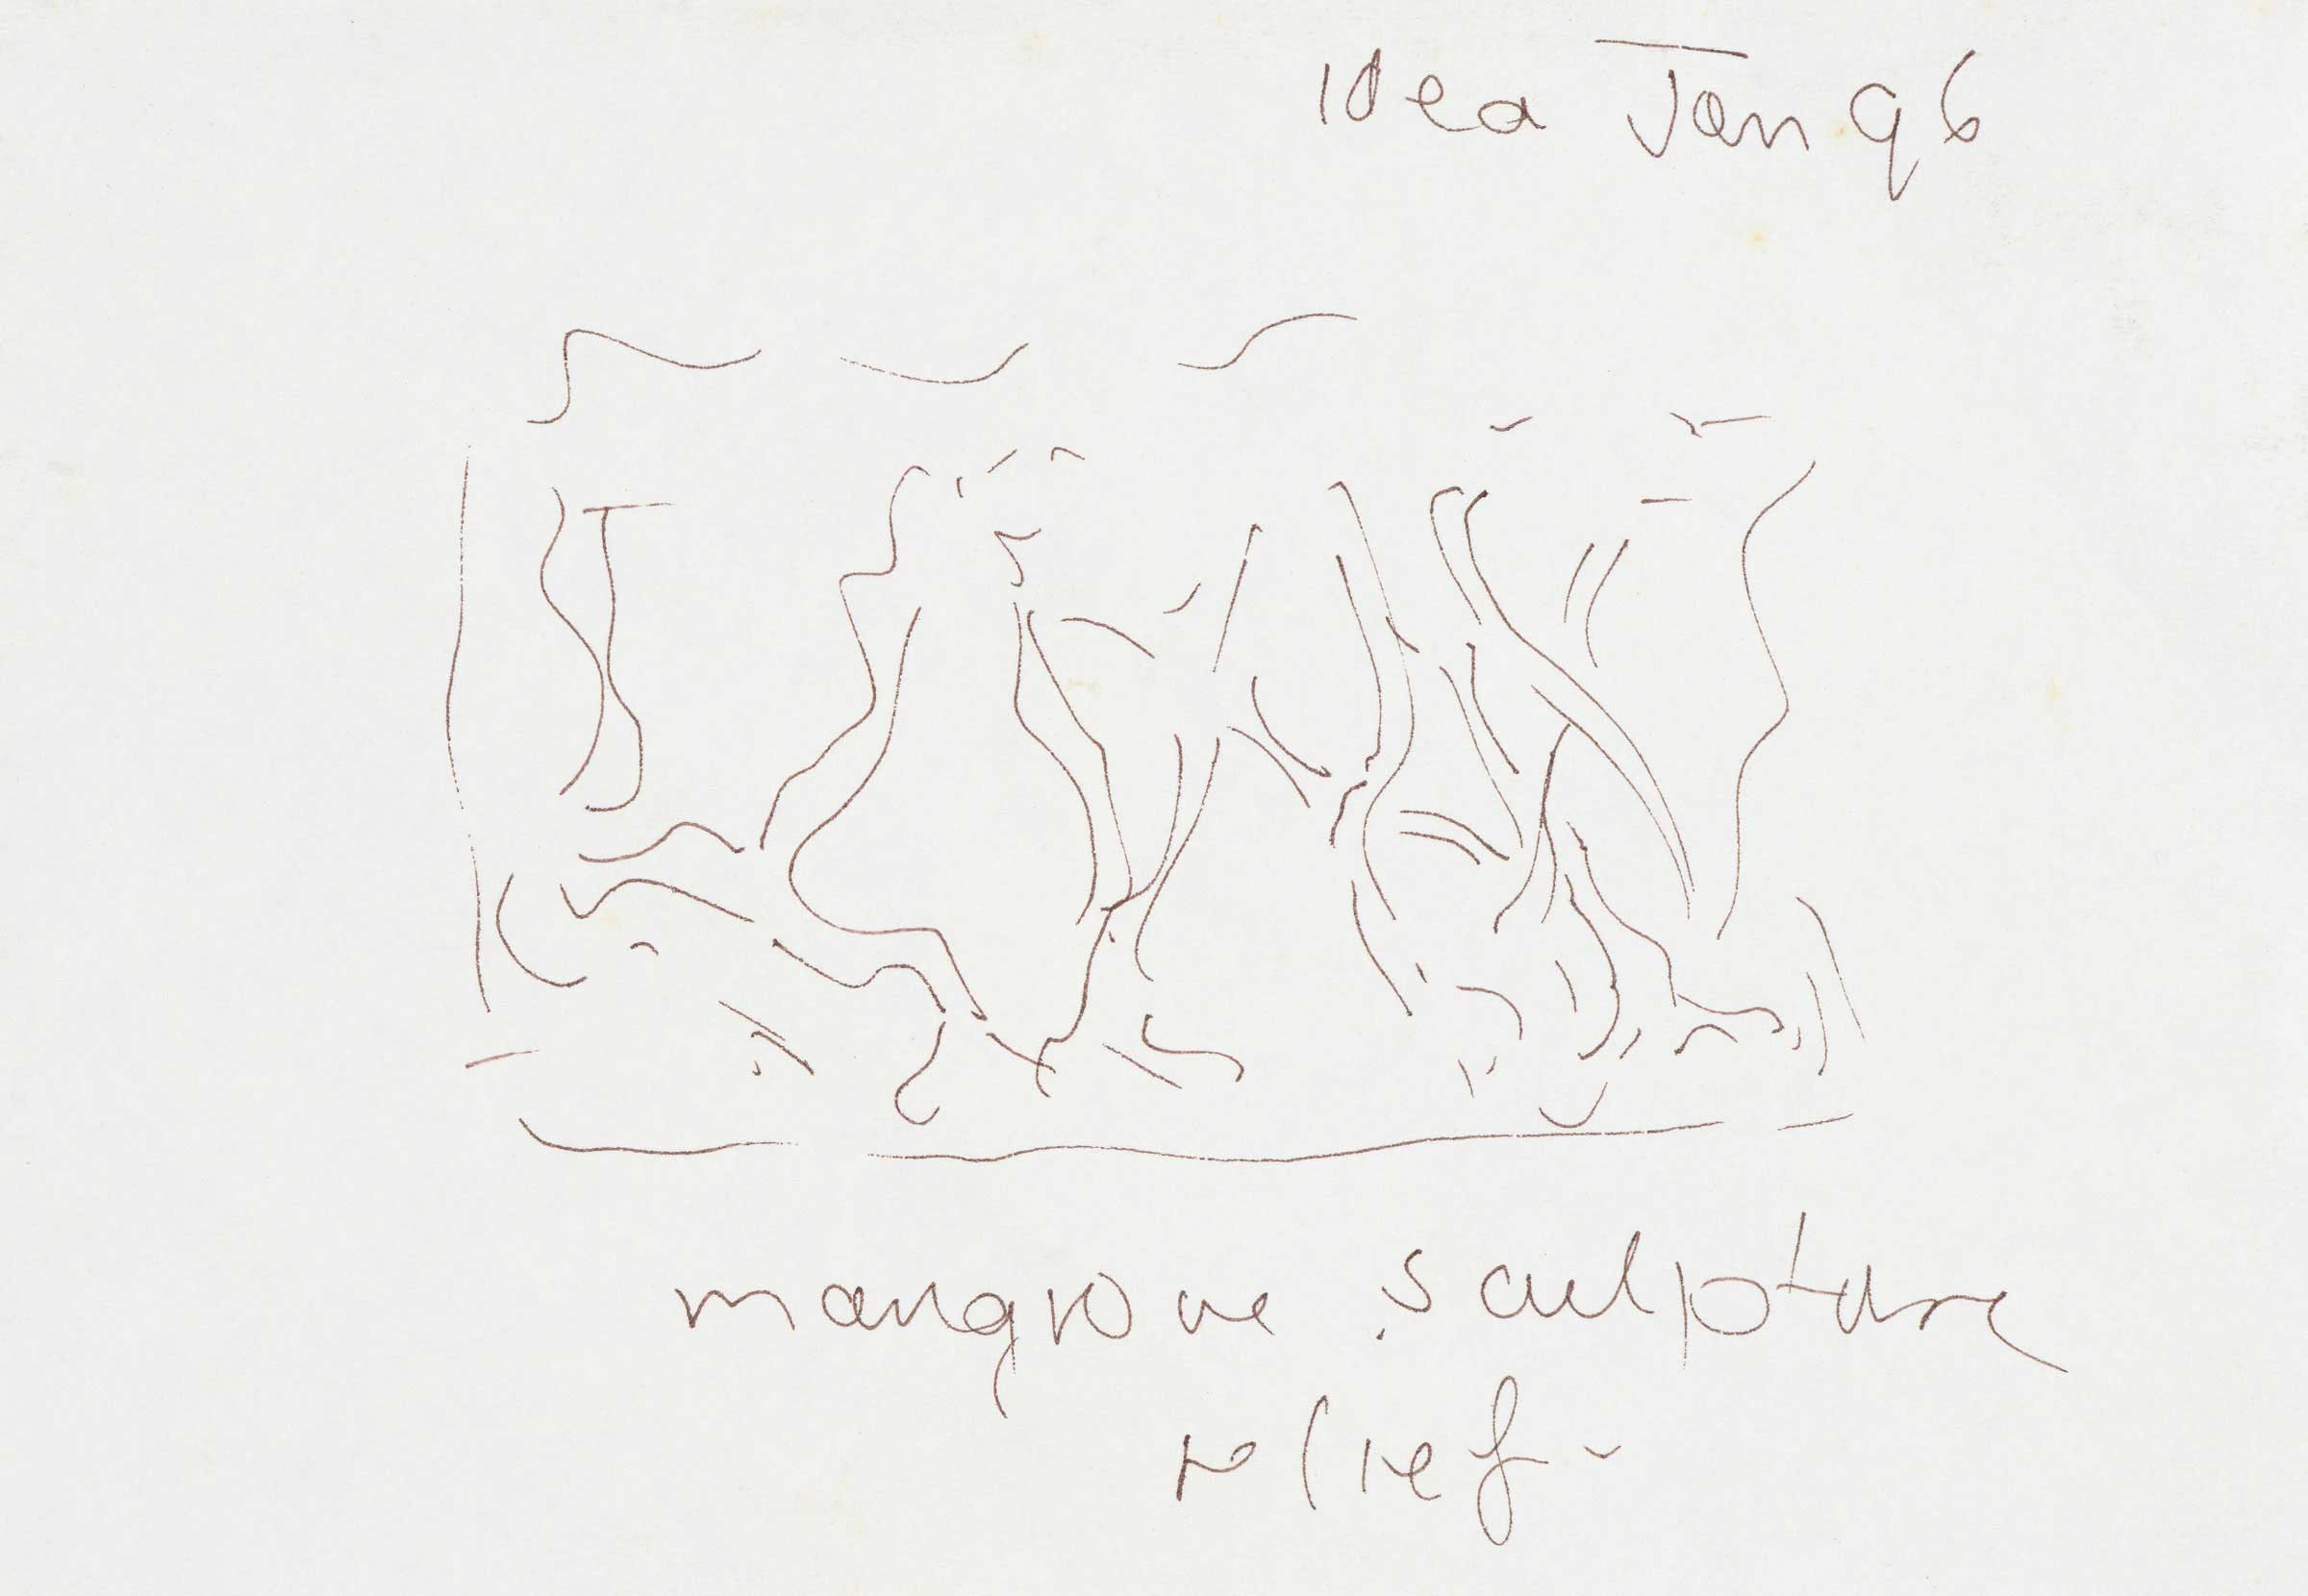 Idea Jan 96
mangrove sculpture
relief -